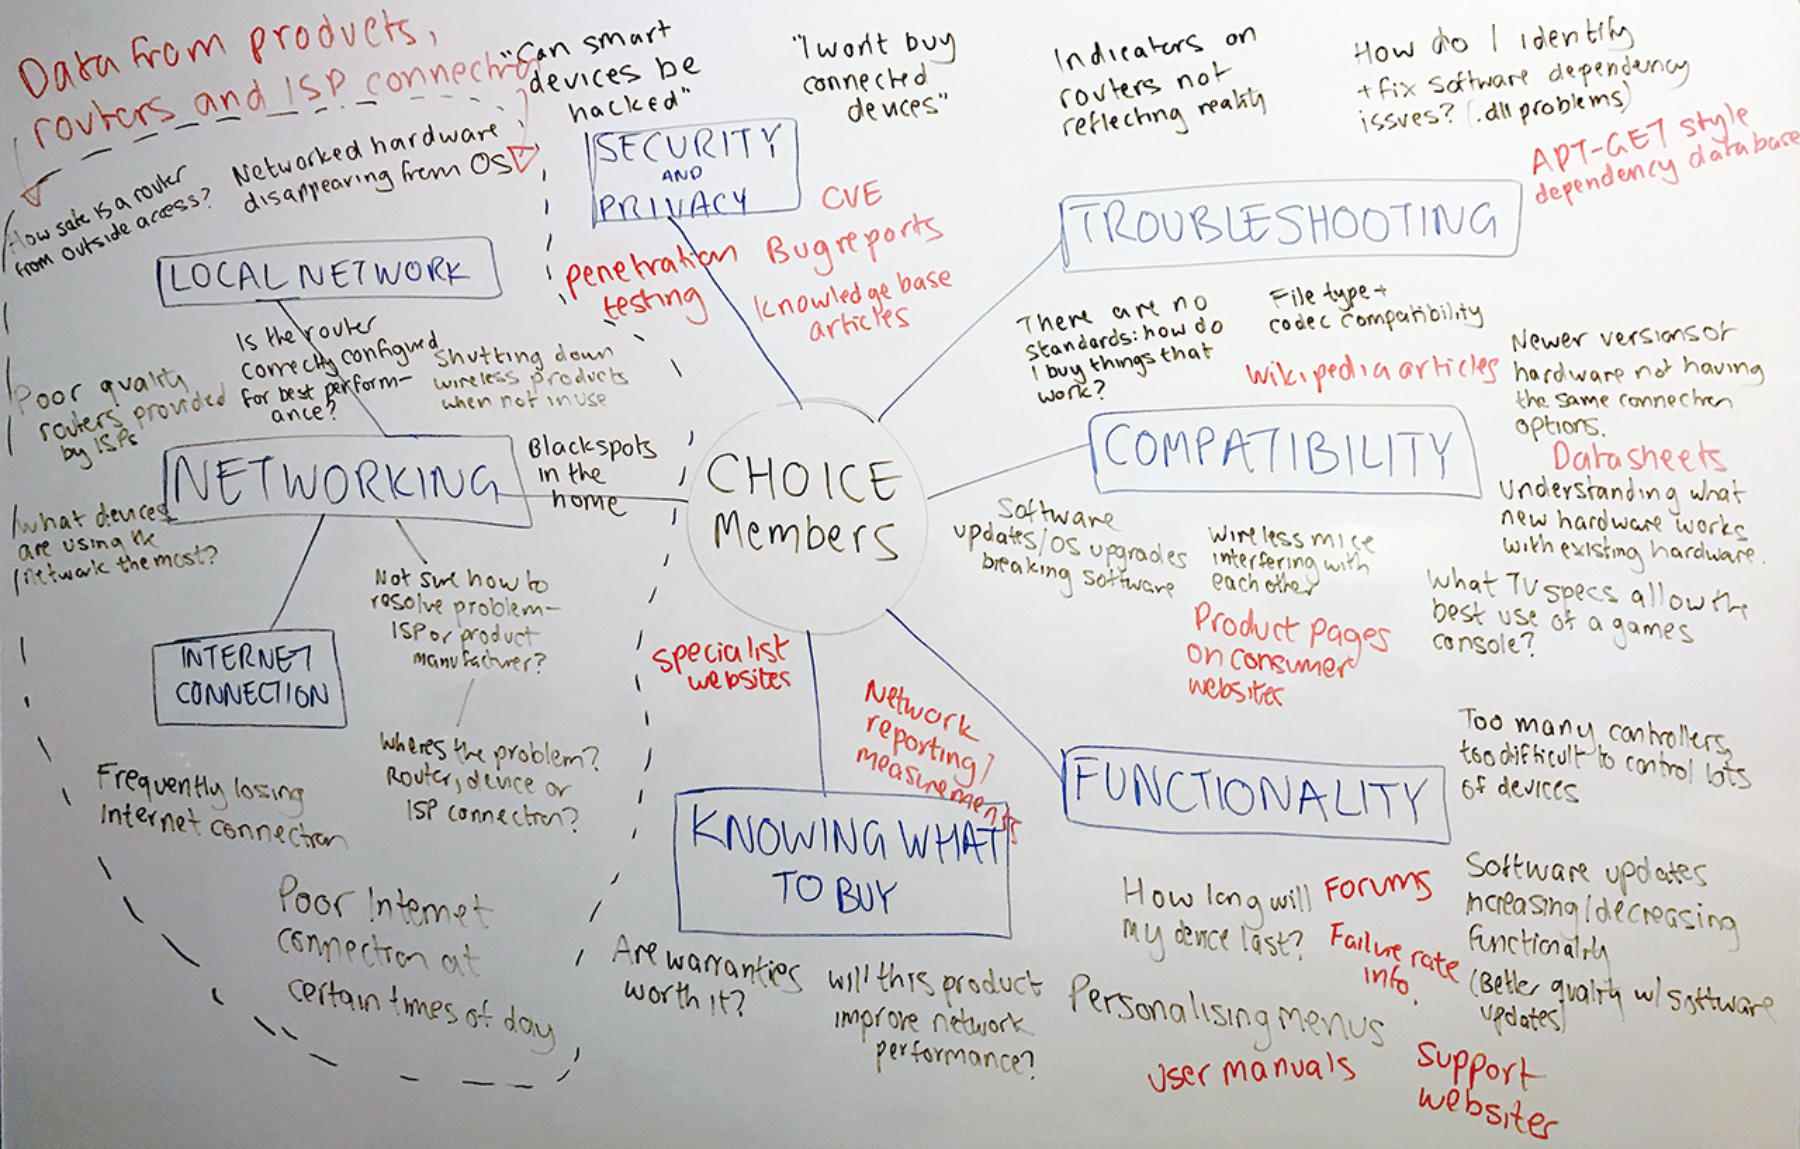 Data from products,
routers and ISP connection
"Can smart
devices be
hacked"
"I won't buy
connected
devices"
Indicators on
routers not
reflecting reality
How do I identify
+ fix software dependency
issues? (.dll problems)
APT-GET style
dependency database
How safe is a router
from outside access?
Networked hardware
disappearing from OS
SECURITY
AND
PRIVACY
CVE
Bug reports
Knowledge base
articles
penetration
testing
TROUBLESHOOTING
LOCAL NETWORK
Is the router
correctly configured
for best perform-
ance?
Shutting down
wireless products
when not in use
Poor quality
routers provided
by ISPs
There are no
standards: how do
I buy things that
work?
File type +
codec compatibility
Wikipedia articles
Newer versions of
hardware not having
the same connection
options.
Datasheets
Understanding what
new hardware works
with existing hardware.
NETWORKING
Blackspots
in the
home
CHOICE
Members
COMPATIBILITY
What devices
are using the
network the most?
Software
updates/OS upgrades
breaking software
Wireless mice
interfering with
each other
Product pages
on consumer
websites
What TV specs allow the
best use of a games
console?
Not sure how to
resolve problem -
ISP or product
manufacturer?
INTERNET
CONNECTION
Where's the problem?
Router, device or
ISP connection?
Frequently losing
Internet connection
Poor Internet
connection at
certain times of day
specialist
websites
Network
reporting/
measurements
KNOWING WHAT
TO BUY
Are warranties
worth it?
will this product
improve network
performance?
FUNCTIONALITY
Too many controllers,
too difficult to control lots
of devices
How long will
my device last?
Forums
Failure rate
info.
Software updates
increasing/decreasing
functionality
(Better quality w/ software
updates)
Personalising menus
user manuals
Support
websites